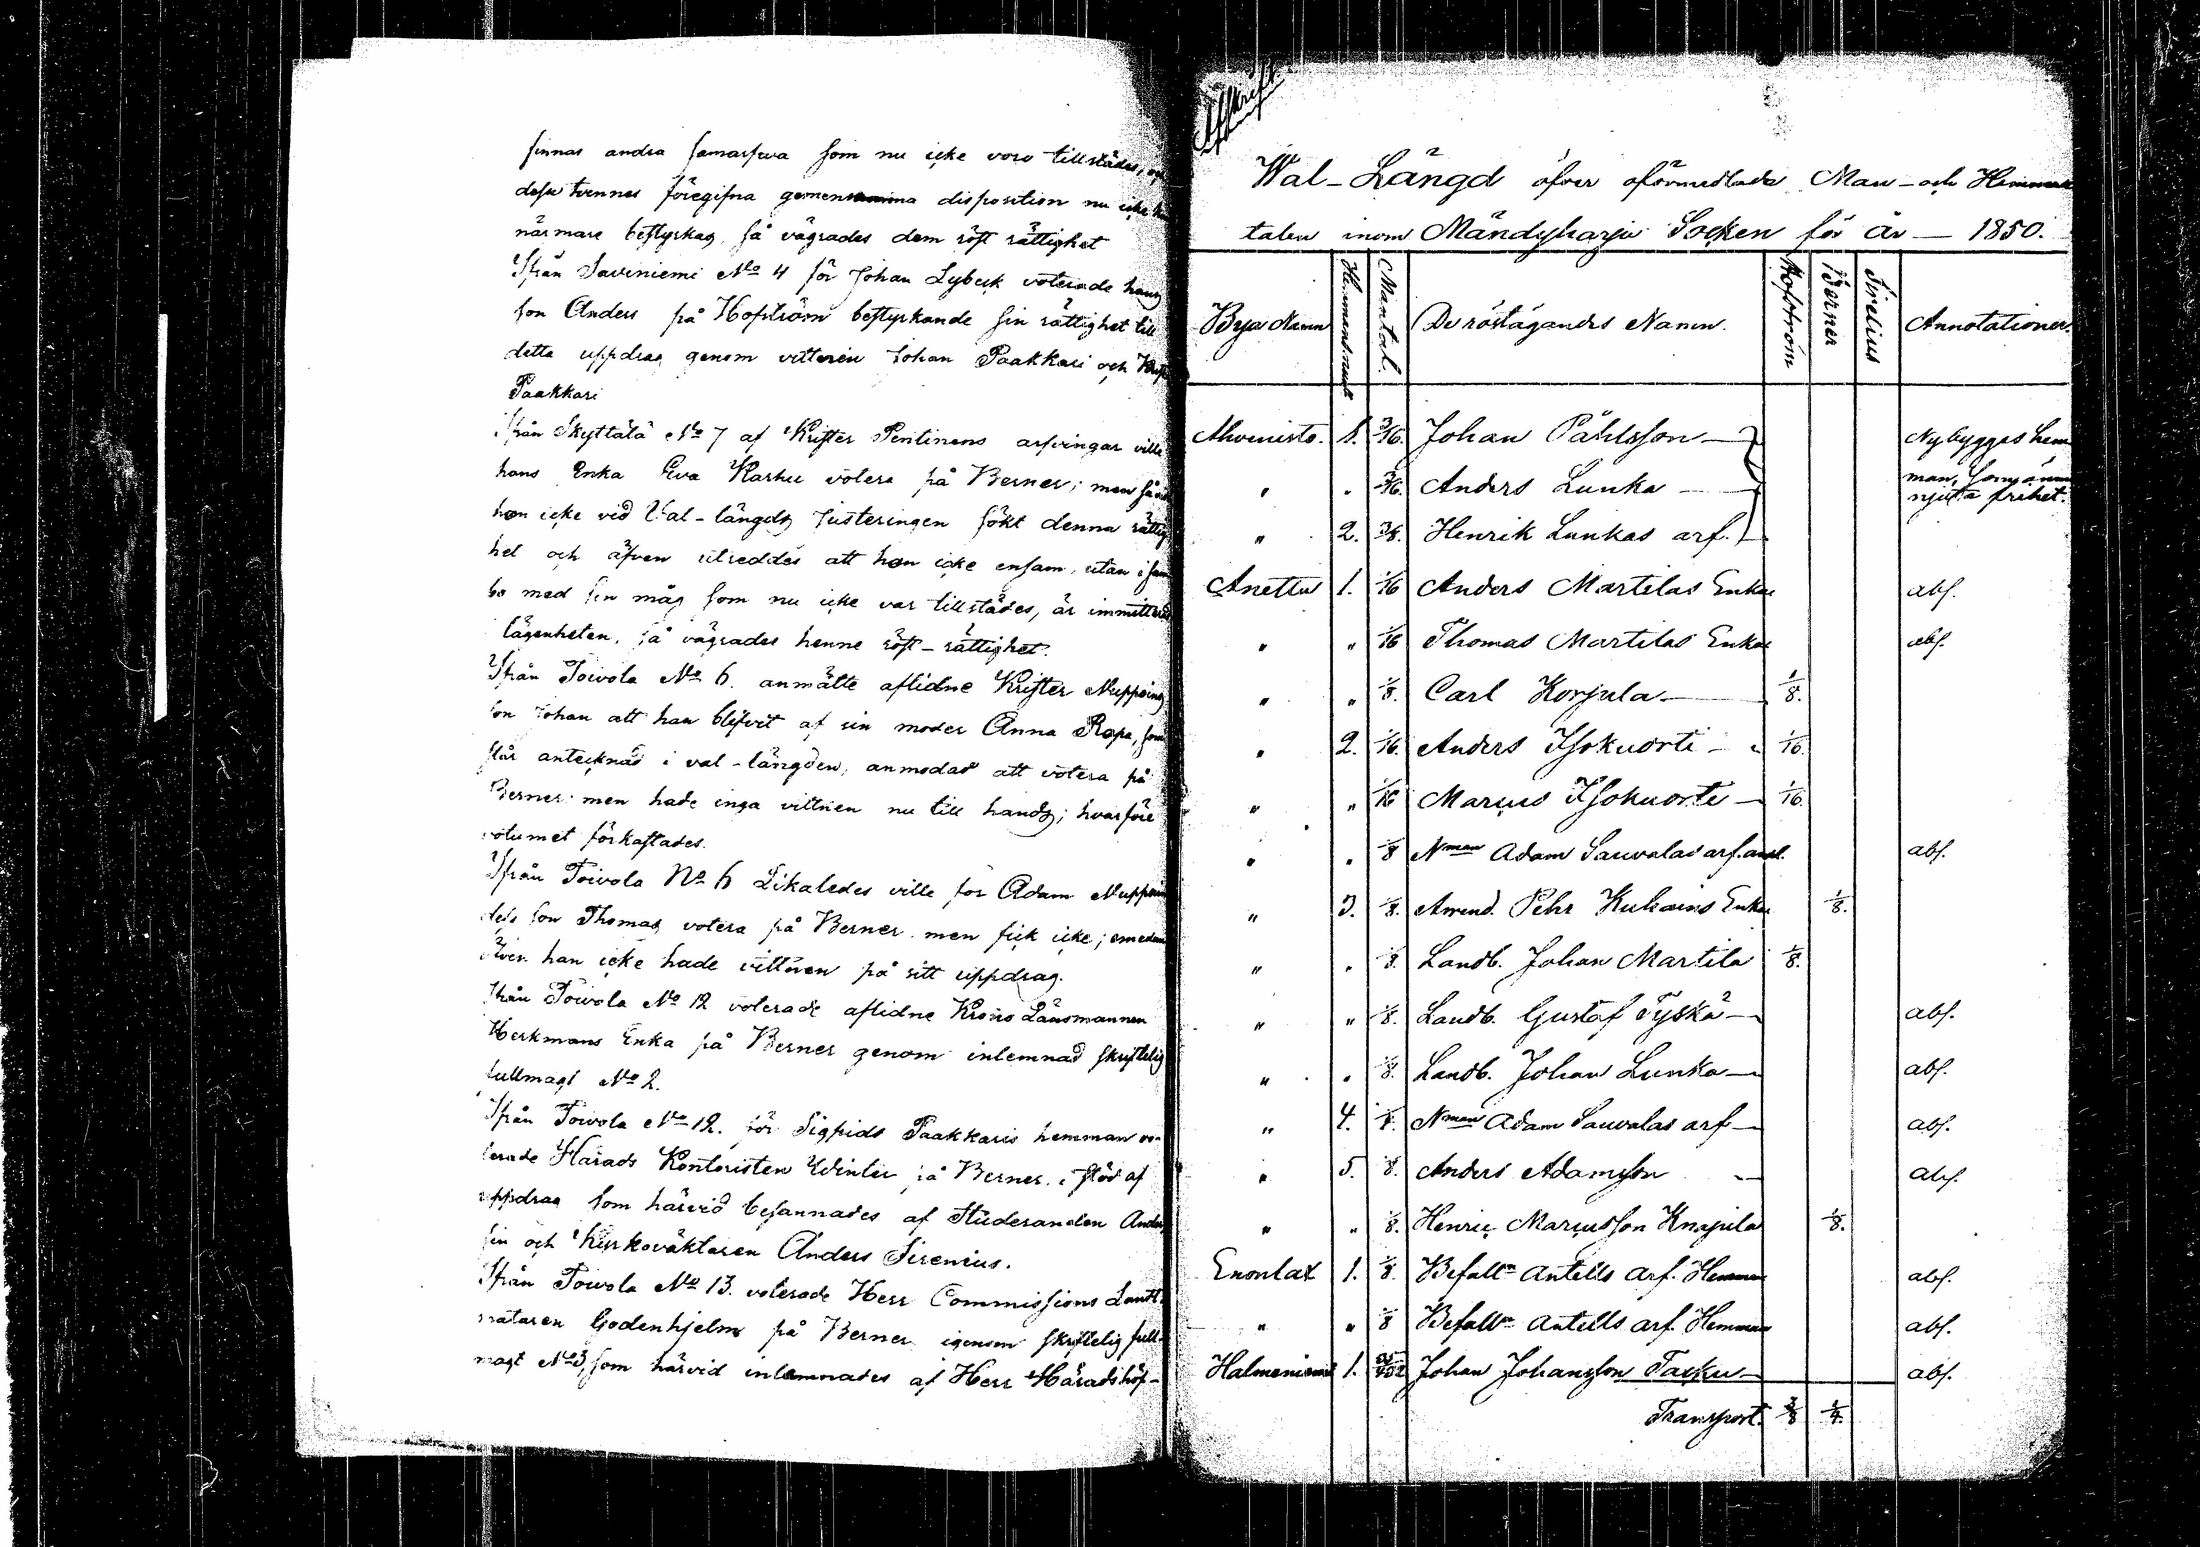 finnas andra samarfwa som nu icke voro tillstädes,
desse tvennes föregifna gemensamma disposition nu icke
närmare bestyrkas, så vägrades dem röst rättighet
Ifrån Saviniemi No 4 för Johan Lybeck voterade hans
son Anders på Hofström bestyrkande sin rättighet till
detta uppdrag genom vittnen Johan Paakkari och
Paakkari
Ifrån Skyttälä No 7 af Krister Penttinens arfvingar ville
hans Enka Eva Karhu votera på Berner; men
hon icke vid Val-längds justeringen sökt denna rättig
het och äfven utreddes att hon icke ensam, utan i sam
bo med sin måg som nu icke var tillstädes, är immitterad
lägenheten, så vägrades henne röst-rättighet.
Ifrån Toivola No 6. anmälte aflidne Krister Nuppoins
son Johan att han blifvit af sin moder Anna Rapa, som
står antecknad i val-längden, anmodad att votera på
Berner: men hade inga vittnen nu till hands; hvarföre
votumet förkastades.
Ifrån Toivola No 6 Likaledes ville för Adam
dess son Thomas votera på Berner men fick icke; emedan
äfven han icke hade vittnen på sitt uppdrag.
Ifrån Toivola No 12 voterade aflidne Krono Länsmannen
Herkmans Enka på Berner genom inlemnad skriftelig
fullmagt No 2.
Ifrån Toivola No 12. för Sigfrids Paakkaris hemman vo-
terade Härads Kontoristen Winter på Berner, i stöd af
uppdrag som härvid besannades af Studeranden
och Kyrkoväktaren Anders Sirenius.
Ifrån Toivola No 13. voterade Herr Commissions Landt
mätaren Godenhjelm på Berner igenom skriftelig full
magt No 3, som härvid inlemnades af Herr Häradshöf-
Afskrift.
Wal-Längd öfver oförmedlade Man- och Hemmans
talen inom Mändyharju Socken för år — 1850.
Bya Namn Hemmans Mantal. De röstägandes Namn. Hofström Berner Sirelius Annotationer.
Ahvenisto. 1. 3/16. Johan Påhlsson — Nybygges hem
" " 3/16. Anders Lunka — man, som ännu
njuta frihet.
" 2. 3/8. Henrik Lunkas arf.
Anettu 1. 1/16 Anders Martilas Enka abs.
" " 1/16 Thomas Martilas Enka abs.
" " 1/8. Carl Korjula — 1/8.
" 2. 1/16. Anders Isokuorti — 1/16.
" " 1/16 Marcus Isokuorti — 1/16.
" " 1/8 Nman Adam Sauvalas arf. abs.
" 3. 1/8. Arrend. Pehr Kukoins Enka 1/8.
" " 1/8. Landb. Johan Martila 1/8.
" " 1/8. Landb. Gustaf Tyskä — abs.
" " 1/8. Landb. Johan Lunka — abs.
" 4. Nman Adam Sauvalas arf — abs.
" 5. 1/8. Anders Adamsson — abs.
" " 1/8. Henric Marcusson Knapila 1/8.
Enonlax 1. 1/8. Befalln Antells arf. Hemman abs.
" " 1/8 Befalln Antells arf. Hemman abs.
Halmeniemi 1. Johan Johansson Tasku — abs.
Transport. 3/8 1/4.